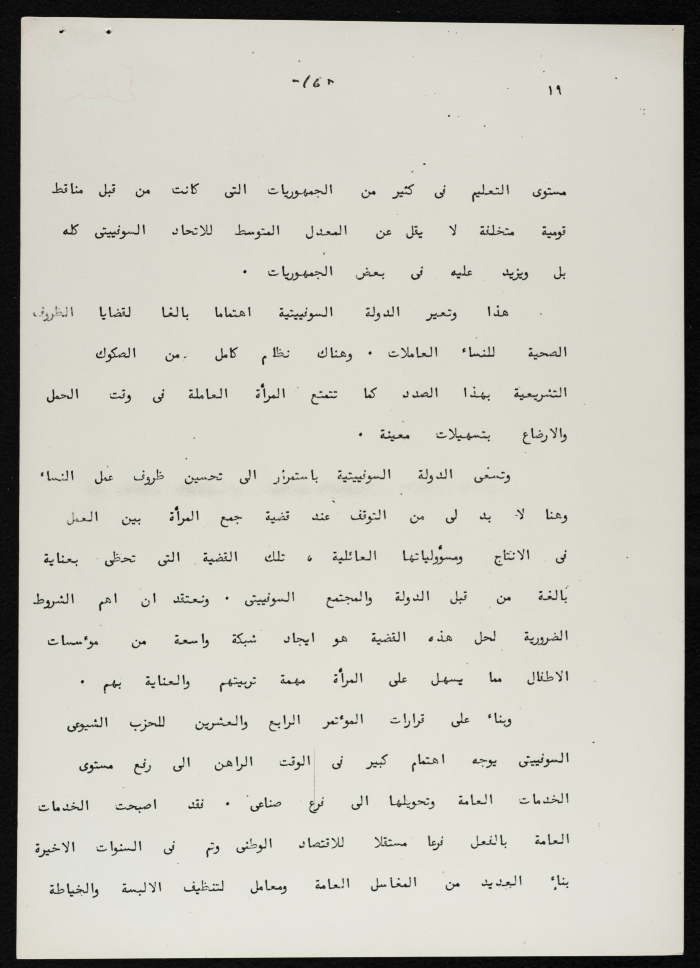 ١٩
-١٦٨
مستوى التعليم فى كثير من الجمهوريات التى كانت من قبل مناقط
قومية متخلفة لا يقل عن المعدل المتوسط للاتحاد السوفييتى كله
بل ويزيد عليه فى بعض الجمهوريات .
هذا وتعير الدولة السوفييتية اهتماما بالغا لقضايا الظروف
الصحية للنساء العاملات . وهناك نظام كامل من الصكوك
التشريعية بهذا الصدد كما تتمتع المرأة العاملة فى وقت الحمل
والارضاع بتسهيلات معينة .
وتسعى الدولة السوفييتية باستمرار الى تحسين ظروف عمل النساء
وهنا لا بد لى من التوقف عند قضية جمع المرأة بين العمل
فى الانتاج ومسؤولياتها العائلية ، تلك القضية التى تحظى بعناية
بالغة من قبل الدولة والمجتمع السوفييتى . ونعتقد ان اهم الشروط
الضرورية لحل هذه القضية هو ايجاد شبكة واسعة من موءسسات
الاطفال مما يسهل على المرأة مهمة تربيتهم والعناية بهم .
وبناء على قرارات الموءتمر الرابع والعشرين للحزب الشيوعى
السوفييتى يوجه اهتمام كبير فى الوقت الراهن الى رفع مستوى
الخدمات العامة وتحويلها الى فرع صناعى . فقد اصبحت الخدمات
العامة بالفعل فرعا مستقلا للاقتصاد الوطنى وتم فى السنوات الاخيرة
بناء العديد من المغاسل العامة ومعامل لتنظيف الالبسة والخياطة